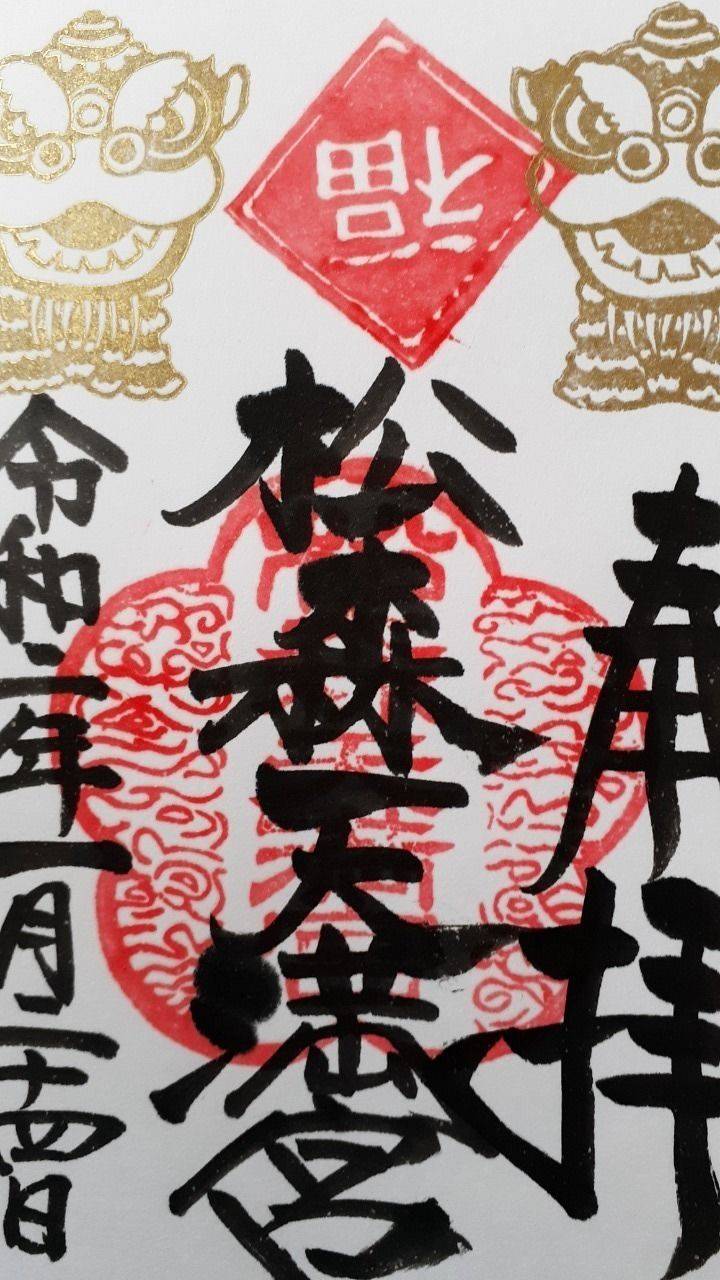 福
奉拝
松森天満宮
令和二年一月二十四日